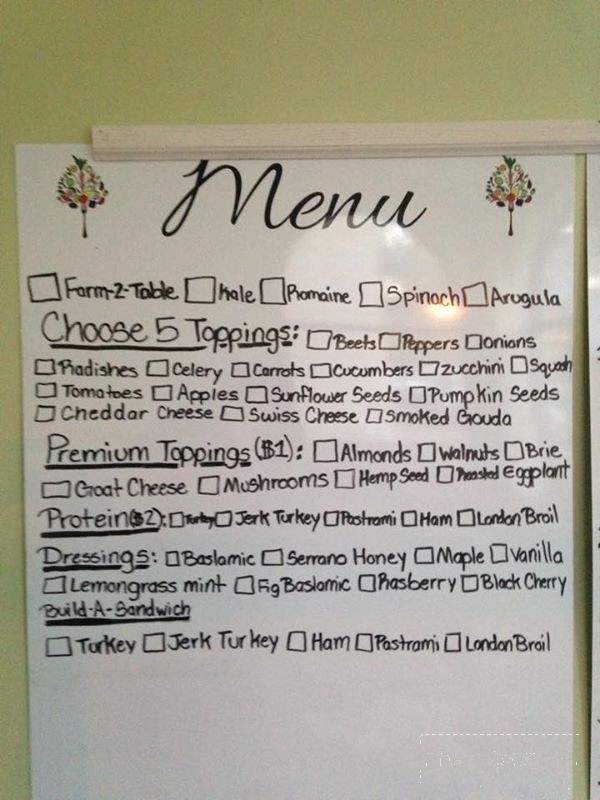 Menu
Farm-2-Table Kale Romaine Spinach Arugula
Choose 5 Toppings: Beets Peppers Onions
Radishes Celery Carrots Cucumbers Zucchini Squash
Tomatoes Apples Sunflower Seeds Pumpkin Seeds
Cheddar Cheese Swiss Cheese Smoked Gouda
Premium Toppings ($1): Almonds Walnuts Brie
Goat Cheese Mushrooms Hemp Seed Roasted Eggplant
Protein($2): Turkey Jerk Turkey Pastrami Ham London Broil
Dressings: Baslamic Serrano Honey Maple Vanilla
Lemongrass mint Fig Baslamic Rasberry Black Cherry
Build-A-Sandwich
Turkey Jerk Turkey Ham Pastrami London Broil